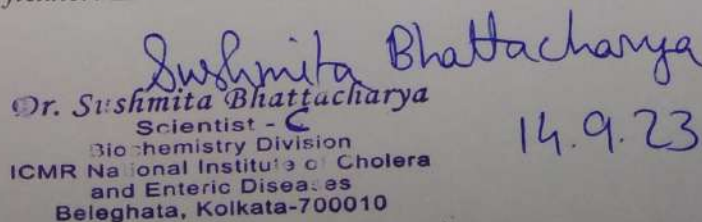 Sushmita Bhattacharya
Dr. Sushmita Bhattacharya
14.9.23
Scientist - C
Biochemistry Division
ICMR National Institute of Cholera
and Enteric Diseases
Beleghata, Kolkata-700010